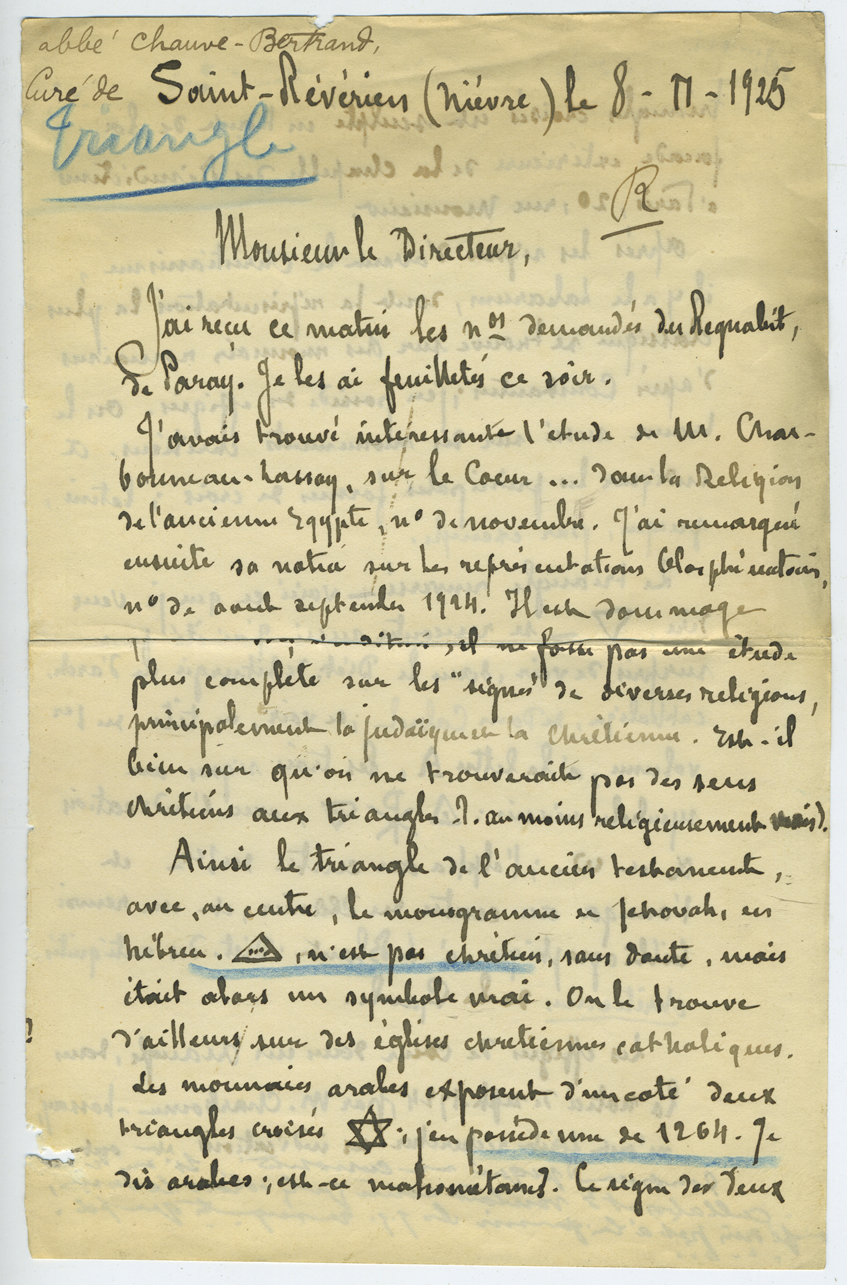 abbé Chauve-Bertrand,
Curé de Saint-Révérien (Nièvre) le 8-11-1925
Triangle
R
Monsieur le Directeur,
J'ai reçu ce matin les nos demandés du Regnabit,
de Paray. Je les ai feuilletés ce soir.
J'avais trouvé intéressante l'étude de M. Char-
bonneau-Lassay, sur le Coeur ... dans la Religion
de l'ancienne Egypte, no de novembre. J'ai remarqué
ensuite sa notice sur les représentations blasphématoires,
no de août septembre 1924. Il est dommage
, il ne fasse pas une étude
plus complète sur les "signes" de diverses religions,
principalement la judaïque et la chrétienne. Est-il
bien sûr qu'on ne trouverait pas des sens
chrétiens aux triangles ?. au moins religieusement vrais).
Ainsi le triangle de l'ancien testament,
avec, au centre, le monogramme de Jehovah, en
hébreu. , n'est pas chrétien, sans doute, mais
était alors un symbole vrai. On le trouve
d'ailleurs sur des églises chrétiennes catholiques.
Les monnaies arabes exposent d'un coté deux
triangles croisés ✡ ; j'en possède une de 1264. Je
dis arabes ; est-ce mahométanes ?. Ce signe des deux